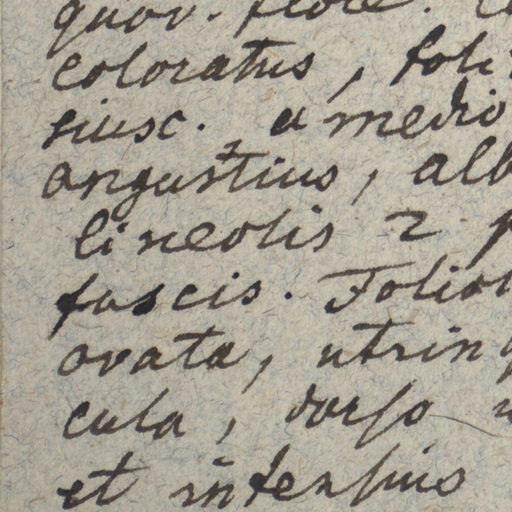 coloratus, foli
siusc. a medio
angustius, alb
lineolis 2 p
fascis. Foliol
ovata, utrinq
cula, dorso
et intensius